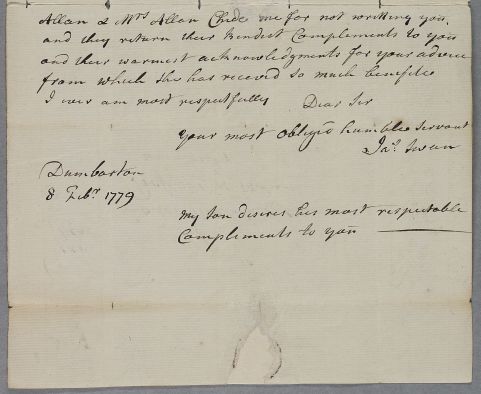 Allan & Mrs Allan Chide me for not writting you.
and they return their kindest Complements to you
and their warmest acknowledgments for your advice
from which she has receved so much benefite
I ever am most respectfully Dear Sir
your most Oblig'd humble Servant
Jas. Swan
Dumbarton
8 Febr. 1779
My son desires his most respectable
Complements to you